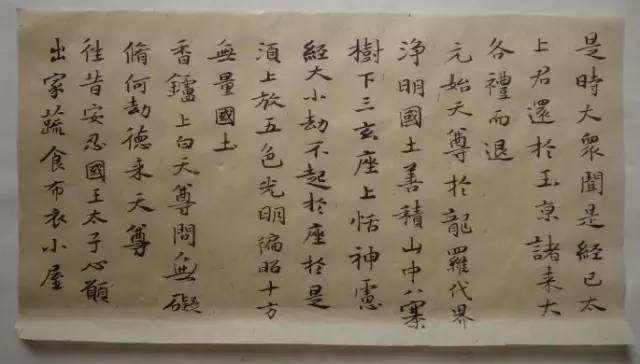 是時大衆聞是經已太
上君還於玉京諸来大
各禮而退
元始天尊於龍羅代界
淨明國土善積山中八寨
樹下三玄座上恬神慮
經大小劫不起於座於是
湏上放五色光明徧昭十方
無量國土
香鑪上白天尊問無礙
脩何劫德来天尊
徃昔安忍國王太子心願
出家蔬食布衣小屋